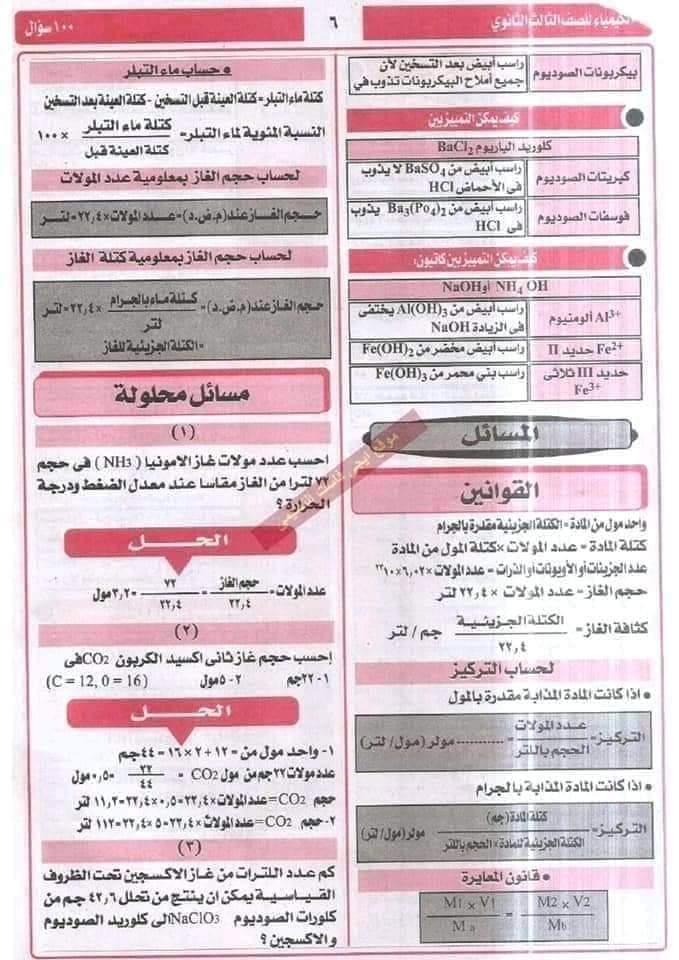 الكيمياء للصف الثالث الثانوي
٦
١٠٠ سؤال
بيكربونات الصوديوم
راسب أبيض بعد التسخين لأن
جميع أملاح البيكربونات تذوب في
كيف يمكن التمييز بين
كلوريد الباريوم BaCl2
كبريتات الصوديوم
راسب أبيض من BaSO4 لا يذوب
فى الأحماض HCl
فوسفات الصوديوم
راسب أبيض من Ba3(Po4)2 يذوب
فى HCl
كيف يمكن التمييز بين كاتيون:
NaOH أو NH4 OH
Al3+ ألومنيوم
راسب أبيض من Al(OH)3 يختفى
فى الزيادة NaOH
Fe2+ حديد II
راسب أبيض مخضر من Fe(OH)2
حديد III ثلاثى
Fe3+
راسب بني محمر من Fe(OH)3
المسائل
القوانين
واحد مول من المادة = الكتلة الجزيئية مقدرة بالجرام
كتلة المادة = عدد المولات × كتلة المول من المادة
عدد الجزيئات أو الأيونات أو الذرات = عدد المولات × ٦,٠٢ × ١٠٢٣
حجم الغاز = عدد المولات × ٢٢,٤ لتر
كثافة الغاز = الكتلة الجزيئية / ٢٢,٤ جم / لتر
لحساب التركيز
• اذا كانت المادة المذابة مقدرة بالمول
التركيز = عدد المولات / الحجم باللتر = ........... مولر (مول / لتر)
• اذا كانت المادة المذابة بالجرام
التركيز = كتلة المادة (جم) / الكتلة الجزيئية للمادة × الحجم باللتر مولر (مول / لتر)
• قانون المعايرة
M1 × V1 / Ma = M2 × V2 / Mb
• حساب ماء التبلر
كتلة ماء التبلر = كتلة العينة قبل التسخين - كتلة العينة بعد التسخين
النسبة المئوية لماء التبلر = كتلة ماء التبلر / كتلة العينة قبل × ١٠٠
لحساب حجم الغاز بمعلومية عدد المولات
حجم الغاز عند (م.ض.د) = عدد المولات × ٢٢,٤ = لتر
لحساب حجم الغاز بمعلومية كتلة الغاز
حجم الغاز عند (م.ض.د) = كتلة ماء بالجرام / لتر × ٢٢,٤ = لتر
= الكتلة الجزيئية للغاز
مسائل محلولة
(١)
احسب عدد مولات غاز الامونيا (NH3) فى حجم
٧٢ لترا من الغاز مقاسا عند معدل الضغط ودرجة
الحرارة ؟
الحل
عدد المولات = حجم الغاز / ٢٢,٤ = ٧٢ / ٢٢,٤ = ٣,٢ مول
(٢)
إحسب حجم غاز ثانى اكسيد الكربون CO2 فى
١- ٢٢ جم ٢- ٥ مول (C = 12, 0 = 16)
الحل
١- واحد مول من = ١٢ + ٢ × ١٦ = ٤٤ جم
عدد مولات ٢٢ جم من مول CO2 = ٢٢ / ٤٤ = ٠,٥ مول
حجم CO2 = عدد المولات × ٢٢,٤ = ٠,٥ × ٢٢,٤ = ١١,٢ لتر
٢- حجم CO2 = عدد المولات × ٢٢,٤ = ٥ × ٢٢,٤ = ١١٢ لتر
(٣)
كم عدد اللترات من غاز الاكسجين تحت الظروف
القياسية يمكن ان ينتج من تحلل ٤٢,٦ جم من
كلورات الصوديوم NaClO3 الى كلوريد الصوديوم
والاكسجين ؟